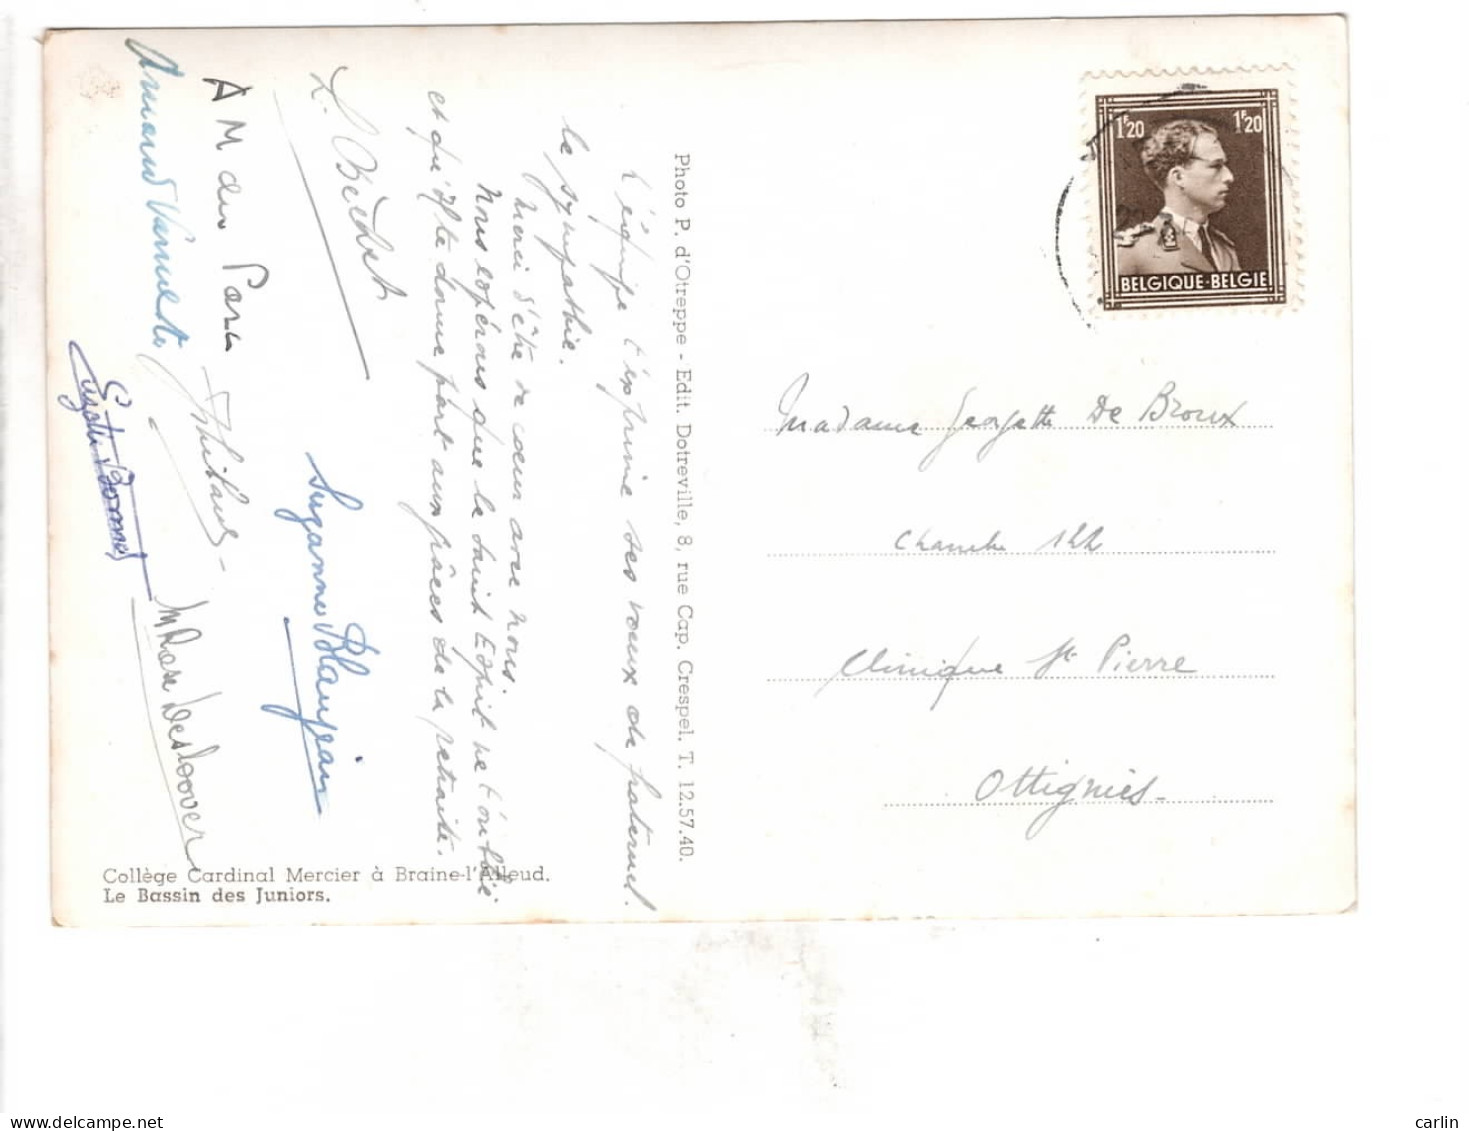 L'équipe t'exprime ses vœux de fraternel
le sympathie.
Merci d'être de cœur avec nous.
Nous espérons que le Saint Esprit ne t'oublie
et qu'Il te donne part aux grâces de la retraite.
L. Bechet
Suzanne Blangrain
A M du Parc
Thibaut
M Rose Desloover
Armand
Photo P. d'Otreppe - Edit. Dotreville, 8, rue Cap. Crespel. T. 12.57.40.
Collège Cardinal Mercier à Braine-l'Alleud.
Le Bassin des Juniors.
1F20 1F20
BELGIQUE·BELGIE
Madame Georgette De Broux
Chambre 122
Clinique St Pierre
Ottignies-
carlin